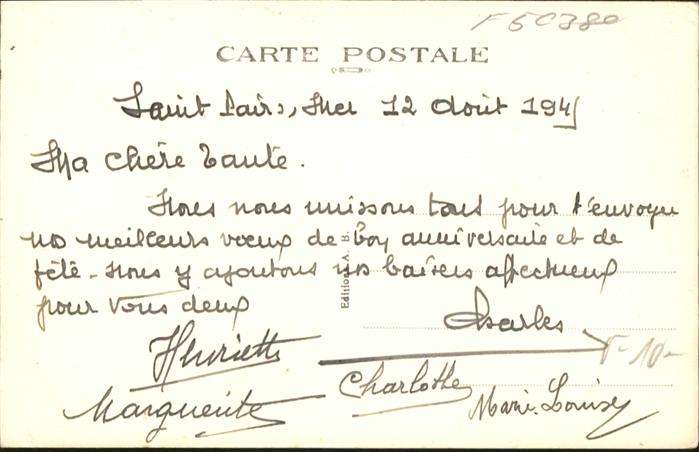 F 50380
CARTE POSTALE
Saint Pair s, Mer 12 Août 1945
Ma chère tante.
Nous nous unissons tous pour t'envoyer
nos meilleurs voeux de bon anniversaire et de
fête - Nous y ajoutons nos baisers affectueux
pour vous deux
Charles
Henriette
Charlotte
Marguerite
Marie-Louise
Edition A. B.